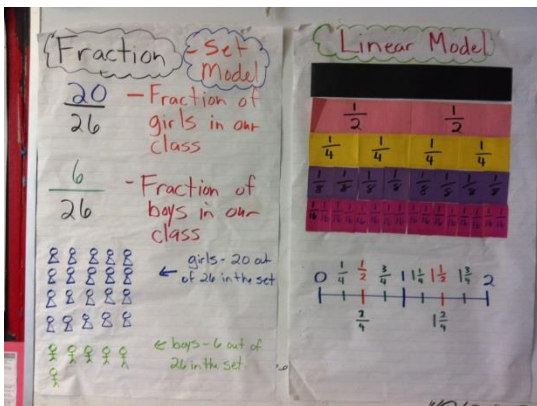 Fraction - Set Model
20/26 - Fraction of
girls in our
class
6/26 - Fraction of
boys in our
class
← girls - 20 out
of 26 in the set
← boys - 6 out of
26 in the set
Linear Model
1/2 1/2
1/4 1/4 1/4 1/4
1/8 1/8 1/8 1/8 1/8 1/8 1/8 1/8
1/16 1/16 1/16 1/16 1/16 1/16 1/16 1/16 1/16 1/16 1/16 1/16 1/16 1/16 1/16 1/16
0 1/4 1/2 3/4 1 1 1/4 1 1/2 1 3/4 2
2/4 1 2/4